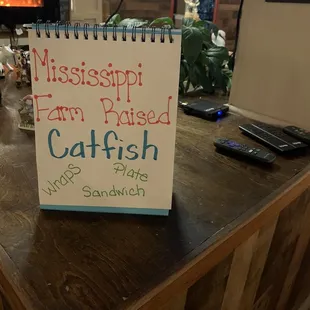 Mississippi
Farm Raised
Catfish
Wraps Plate
Sandwich